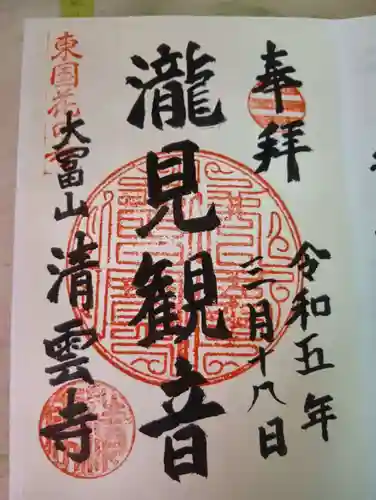 奉拝
令和五年
三月十八日
瀧見観音
東国花の寺
大冨山
清雲寺